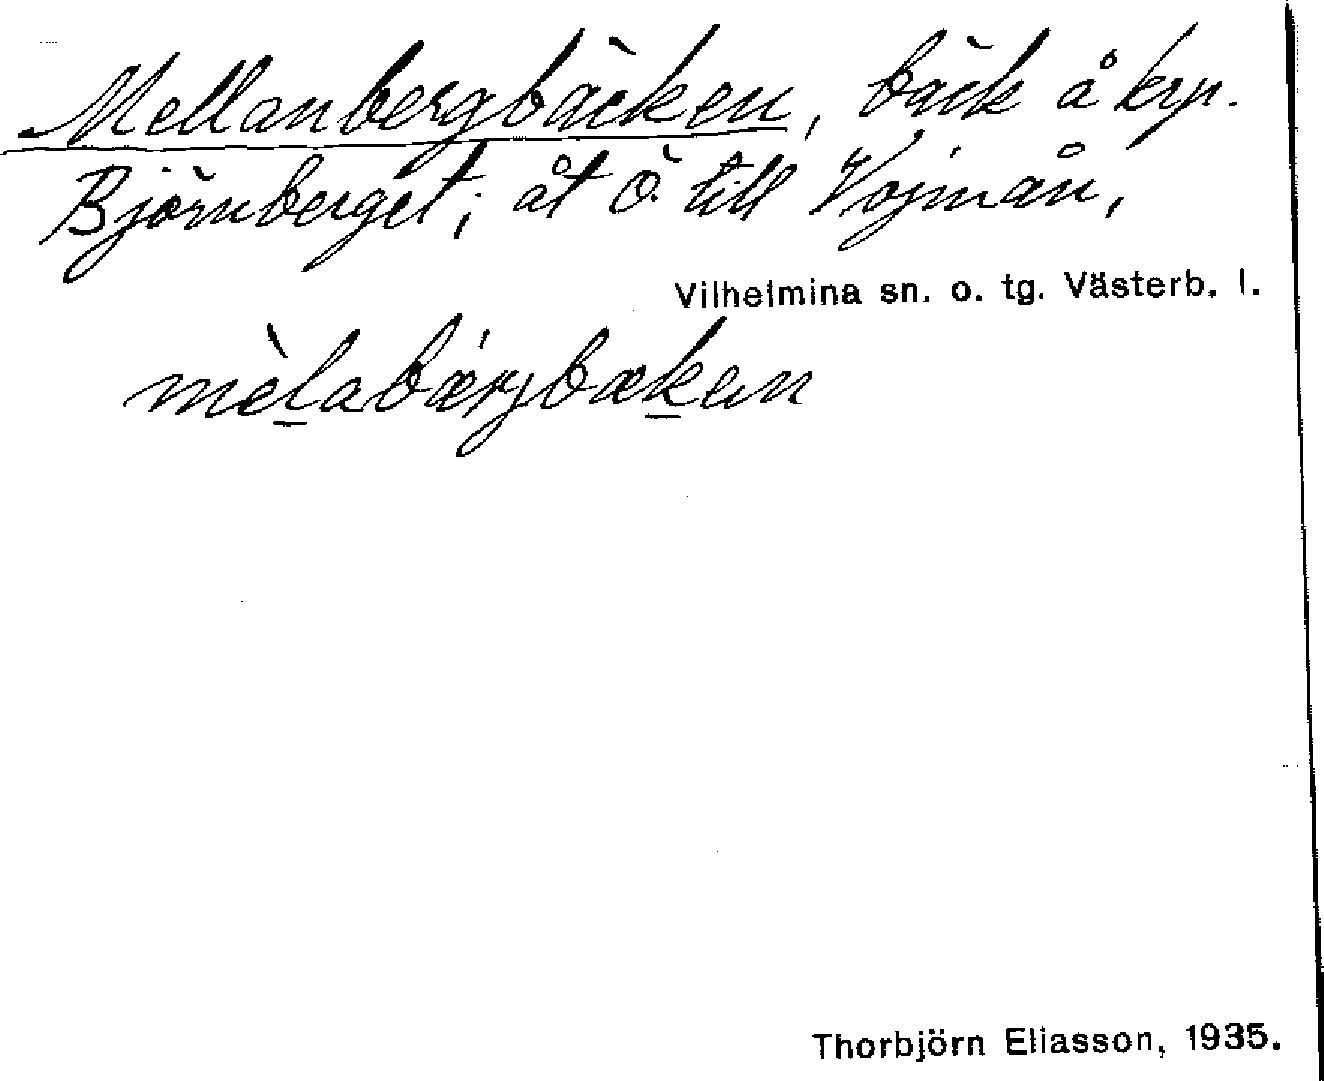 Mellanbergbäcken, bäck å krp.
Björnberget; åt Ö. till Vojmån,
Vilhelmina sn. o. tg. Västerb. l.
mèlabærjbækan
Thorbjörn Eliasson, 1935.